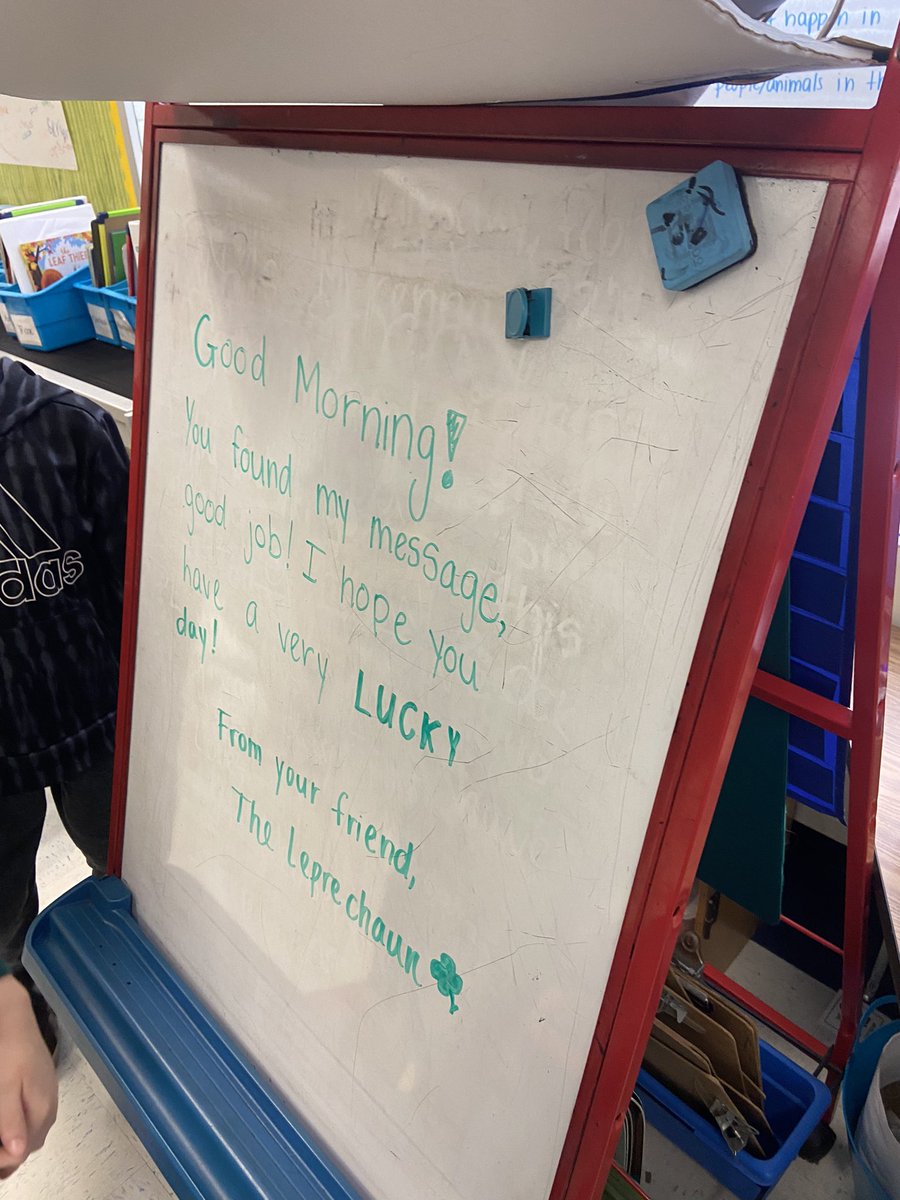 happen in
people/animals in th
LEAF THIEF
das
Good Morning!
You found my message,
good job! I hope you
have a very LUCKY
day!
From your friend,
The Leprechaun